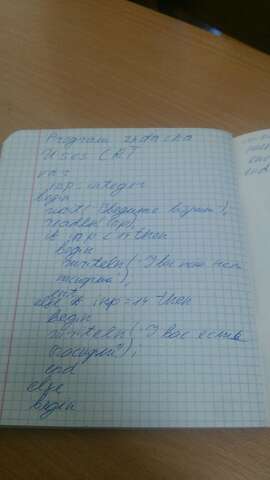 Program zadacha
Uses CRT
var:
inp=integer
begin
writ('Введите возраст');
readln(inp);
if inp < 14 then
begin
writeln('У вас нет
паспорта');
end
else if inp=14 then
begin
writeln('У вас есть
паспорт');
end
else
begin